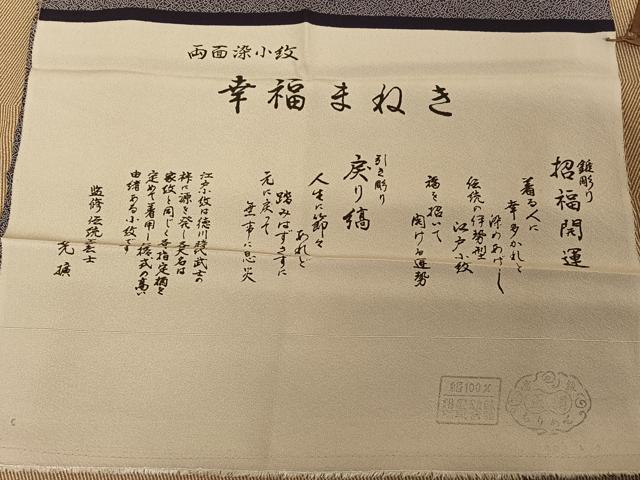 両面染小紋
幸福まねき
錐彫り
招福開運
着る人に
幸多かれと
染めあげし
伝統の伊勢型
江戸小紋
福を招いて
開ける運勢
引き彫り
戻り縞
人生に節々
あれど
踏みはずさずに
元に戻って
無事に息災
江戸小紋は徳川時代武士の
裃に源を発し各大名は
家紋と同じく各指定柄を
定めて着用し格式の高い
由緒ある小紋です
監修伝統工芸士
絹100%
ちりめん